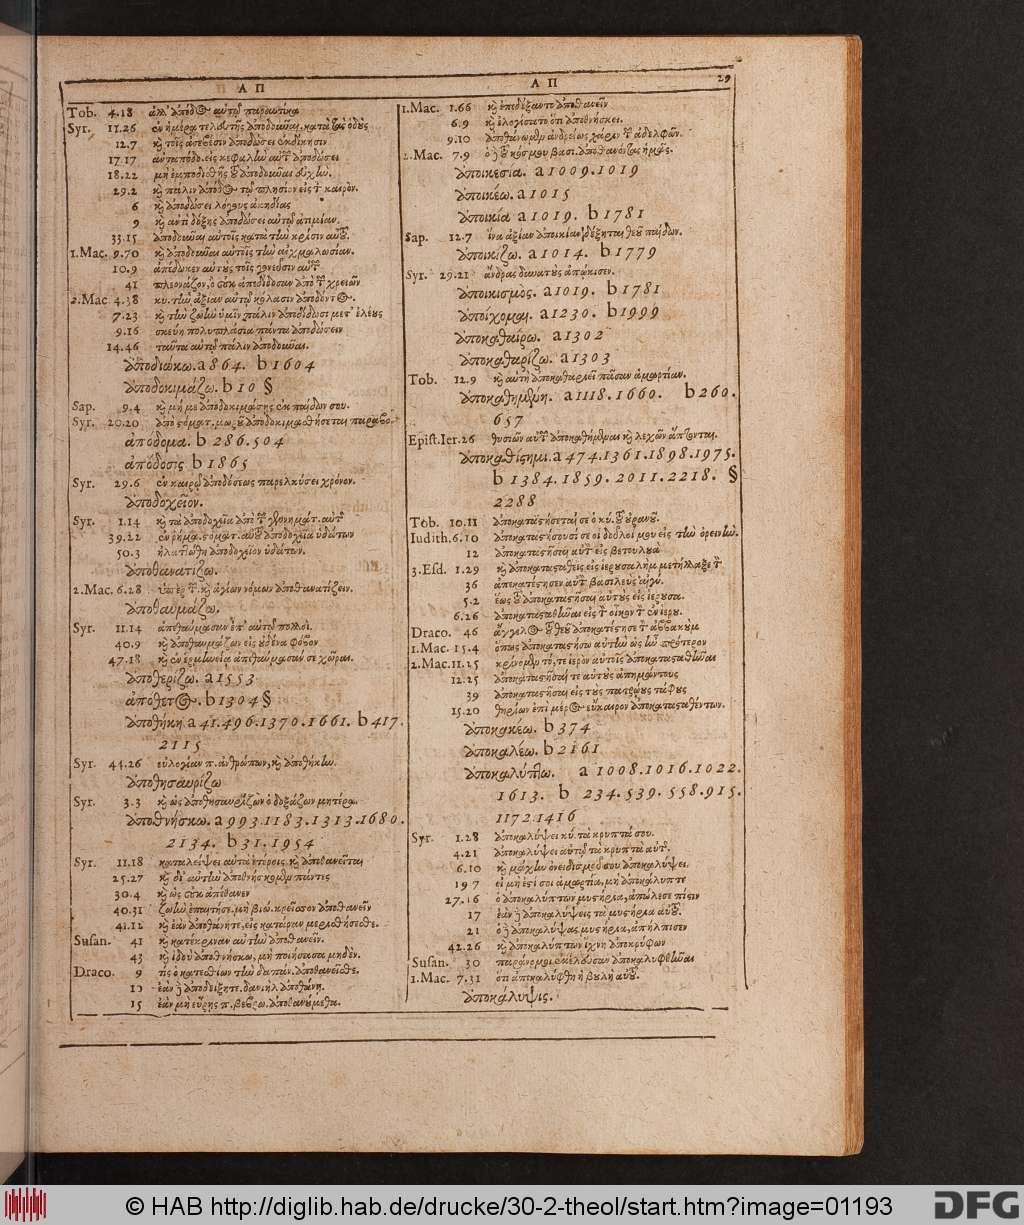 Α Π
Α Π 29
Tob. 4.18 ἀλλ' ἀπόδος αὐτῷ παραυτίκα
Syr. 11.26 ἐν ἡμέρᾳ τελευτῆς ἀποδοῦναι κατὰ τὰς ὁδοὺς
12.7 κὶ τοῖς ἀσεβέσιν ἀποδώσει ἐκδίκησιν
17.17 ἀνταποδο. εἰς κεφαλὴν αὐτῶν ἀποδώσει
18.22 μὴ ἐμποδισθῇς τοῦ ἀποδοῦναι εὐχὴν.
29.2 κὶ πάλιν ἀπόδος τῷ πλησίον εἰς τὸν καιρὸν.
6 κὶ ἀποδώσει λόγους ἀκηδίας
9 κὶ ἀντὶ δόξης ἀποδώσει αὐτῷ ἀτιμίαν.
33.15 ἀποδοῦναι αὐτοῖς κατὰ τὴν κρίσιν αὐτοῦ.
1.Mac. 9.70 κὶ ἀποδοῦναι αὐτοῖς τὴν αἰχμαλωσίαν.
10.9 ἀπέδωκεν αὐτοὺς τοῖς γονεῦσιν αὐτῶν
41 πλεονάζον, ὃ οὐκ ἀπεδίδοσαν ἀπὸ τῶν χρειῶν
2.Mac 4.38 κυ. τὴν ἀξίαν αὐτῷ κόλασιν ἀποδόντος.
7.23 κὶ τὴν ζωὴν ὑμῖν πάλιν ἀποδίδωσι μετ' ἐλέους
9.16 σκεύη πολυπλάσια πάντα ἀποδώσειν
14.46 ταῦτα αὐτῷ πάλιν ἀποδοῦναι.
ἀποδιώκω. a 864. b 1604
ἀποδοκιμάζω. b 10 §
Sap. 9.4 κὶ μή με ἀποδοκιμάσῃς ἐκ παίδων σου.
Syr. 20.20 ἀπὸ στόματ. μωροῦ ἀποδοκιμασθήσεται παραβο.
ἀπόδομα. b 286.504
ἀπόδοσις b 1865
Syr. 29.6 ἐν καιρῷ ἀποδόσεως παρελκύσει χρόνον.
ἀποδοχεῖον.
Syr. 1.14 κὶ τὰ ἀποδοχεῖα ἀπὸ τῶν γεννημάτ. αὐτῶν
39.22 ἐν ῥήμα. στόματ. αὐτοῦ ἀποδοχεῖα ὑδάτων
50.3 ἠλαττώθη ἀποδοχεῖον ὑδάτων.
ἀποθανατίζω.
2.Mac. 6.28 ὑπὲρ τῶν κὶ ἁγίων νόμων ἀποθανατίζειν.
ἀποθαυμάζω.
Syr. 11.14 ἀπεθαύμασαν ἐπ' αὐτῷ πολλοὶ.
40.9 κὶ ἀποθαυμάζων εἰς οὐδένα φόβον
47.18 κὶ ἐν ἑρμηνείᾳ ἀπεθαύμασάν σε χῶραι.
ἀποθερίζω. a 1553
ἀπόθετος. b 1304 §
ἀποθήκη a 41.496.1370.1661. b 417.
2115
Syr. 44.26 εὐλογίαν π. ἀνθρώπων, κὶ ἀποθήκην.
ἀποθησαυρίζω
Syr. 3.3 κὶ ὡς ἀποθησαυρίζων ὁ δοξάζων μητέρα.
ἀποθνήσκω. a 993.1183.1313.1680.
2134. b 31.1954
Syr. 11.18 καταλείψει αὐτὰ ἑτέροις κὶ ἀποθανεῖται
25.27 κὶ δι' αὐτὴν ἀποθνήσκομεν πάντες
30.4 κὶ ὡς οὐκ ἀπέθανεν
40.31 ζωὴν ἐπαιτήσ. μὴ βιῶ. κρεῖσσον ἀποθανεῖν
41.12 κὶ ἐὰν ἀποθάνητε, εἰς κατάραν μερισθήσεσθε.
Susan. 41 κὶ κατέκριναν αὐτὴν ἀποθανεῖν.
43 κὶ ἰδοὺ ἀποθνήσκω, μὴ ποιήσασα μηδὲν.
Draco. 9 τίς ὁ κατεσθίων τὴν δαπάν. ἀποθανεῖσθε.
ἐὰν δὲ ἀποδείξητε. δανιὴλ ἀποθάνῃ.
15 ἐὰν μὴ εὕρῃς π. βεβρω. ἀποθανούμεθα.
1.Mac. 1.66 κὶ ἐπεδέξαντο ἀποθανεῖν
6.9 κὶ ἐλογίσατο ὅτι ἀποθνήσκει.
9.10 ἀποθάνωμεν ἀνδρείως χάριν τῶν ἀδελφῶν.
2.Mac. 7.9 ὁ δὲ τοῦ κόσμου βασι. ἀποθανόντας ἡμᾶς.
ἀποικεσία. a 1009.1019
ἀποικέω. a 1015
ἀποικία a 1019. b 1781
Sap. 12.7 ἵνα ἀξίαν ἀποικίαν δέξηται θεοῦ παίδων.
ἀποικίζω. a 1014. b 1779
Syr. 29.21 ἄνδρας δυνατοὺς ἀπώκισεν.
ἀποικισμὸς. a 1019. b 1781
ἀποίχομαι. a 1230. b 1999
ἀποκαθαίρω. a 1302
ἀποκαθαρίζω. a 1303
Tob. 12.9 κὶ αὐτὴ ἀποκαθαριεῖ πᾶσαν ἁμαρτίαν.
ἀποκαθημένη. a 1118.1660. b 260.
657
Epist.Ier. 26 θυσιῶν αὐτῶν ἀποκαθήμεναι κὶ λεχὼν ἅπτονται.
ἀποκαθίστημι. a 474.1361.1898.1975.
b 1384.1859.2011.2218. §
2288
Tob. 10.11 ἀποκαταστήσεταί σε ὁ κύ. τοῦ οὐρανοῦ.
Iudith. 6.10 ἀποκαταστήσουσί σε οἱ δοῦλοί μου εἰς τὴν ὀρεινὴν.
12 ἀποκαταστῆσαι αὐτὸν εἰς βετουλουὰ
3.Esd. 1.29 κὶ ἀποκατασταθεὶς εἰς ἱερουσαλὴμ μετήλλαξε τὸν
36 ἀπεκατέστησεν αὐτὸν βασιλεὺς αἰγυ.
5.2 ἕως τοῦ ἀποκαταστῆσαι αὐτοὺς εἰς ἱερουσα.
6.26 ἀποκατασταθῆναι εἰς τὸν οἶκον τὸν ἐν ἱερου.
Draco. 46 ἄγγελος τοῦ θεοῦ ἀποκατέστησε τὸν ἀββακοὺμ
1.Mac. 15.4 ὅπως ἀποκαταστήσω αὐτὴν ὡς ἦν πρότερον
2.Mac. 11.25 κρίνομεν τό, τε ἱερὸν αὐτοῖς ἀποκατασταθῆναι
12.25 ἀποκαταστῆσαί τε αὐτοὺς ἀπημάντους
39 ἀποκαταστῆσαι εἰς τοὺς πατρῴους τάφους
15.20 θηρίων ἐπὶ μέρος εὔκαιρον ἀποκατασταθέντων.
ἀποκακέω. b 374
ἀποκαλέω. b 2161
ἀποκαλύπτω. a 1008.1016.1022.
1613. b 234.539.558.915.
1172.1416
Syr. 1.28 ἀποκαλύψει κύ. τὰ κρυπτά σου.
4.21 ἀποκαλύψει αὐτῷ τὰ κρυπτὰ αὐτ.
6.10 κὶ μάχην ὀνειδισμοῦ σου ἀποκαλύψει.
19 7 εἰ μὴ ἔστι σοι ἁμαρτία, μὴ ἀποκάλυπτε
27.16 ὁ ἀποκαλύπτων μυστήρια, ἀπώλεσε πίστιν
17 ἐὰν δὲ ἀποκαλύψῃς τὰ μυστήρια αὐτοῦ.
21 ὁ δὲ ἀποκαλύψας μυστήρια, ἀπήλπισεν
42.26 κὶ ἀποκαλύπτων ἴχνη ἀποκρύφων
Susan. 30 παράνομοι ἐκέλευσαν ἀποκαλυφθῆναι
1.Mac. 7.31 ὅτι ἀπεκαλύφθη ἡ βουλὴ αὐτοῦ.
ἀποκάλυψις.
© HAB http://diglib.hab.de/drucke/30-2-theol/start.htm?image=01193
DFG